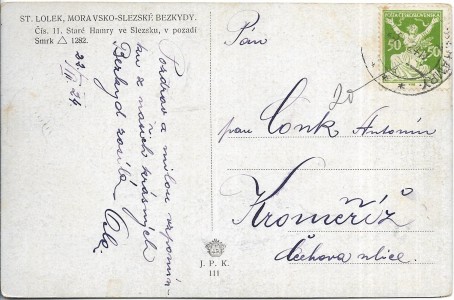 ST. LOLEK, MORAVSKO-SLEZSKÉ BEZKYDY.
Čís. 11. Staré Hamry ve Slezsku, v pozadí
Smrk △ 1282.
22/III. 24.
Pozdrav a milou vzpomín-
ku z našich krásných
Bezkyd zasílá
J. P. K.
111
POŠTA ČESKOSLOVENSKÁ
50 50
Pán
20
pan Conk Antonín
Kroměříž
Čechova ulice.